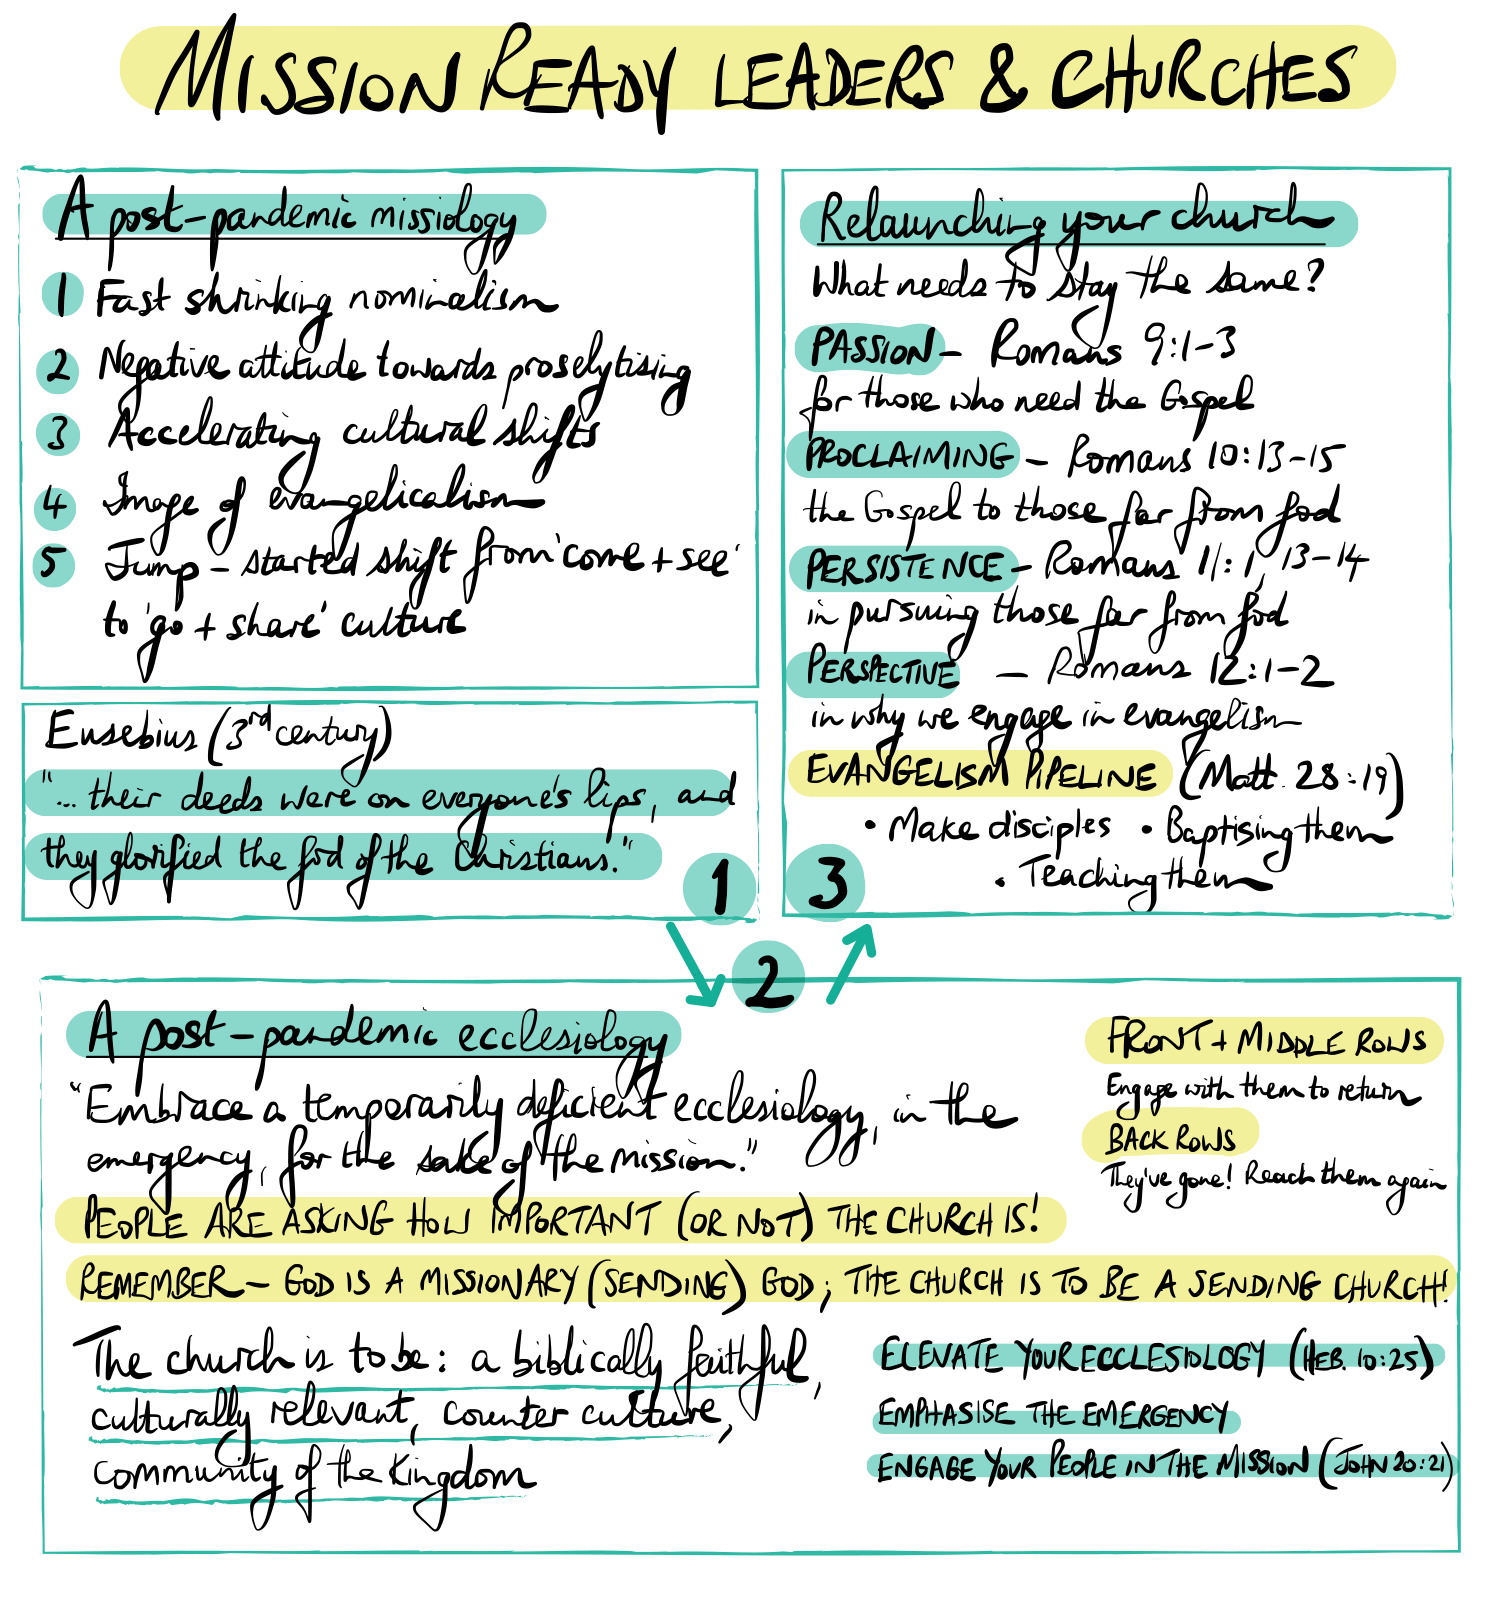 MISSION READY LEADERS & CHURCHES
A post-pandemic missiology
1 Fast shrinking nominalism
2 Negative attitude towards proselytising
3 Accelerating cultural shifts
4 Image of evangelicalism
5 Jump-started shift from 'come + see'
to 'go + share' culture
Eusebius (3rd century)
"... their deeds were on everyone's lips, and
they glorified the God of the Christians."
1
2
A post-pandemic ecclesiology
"Embrace a temporarily deficient ecclesiology, in the
emergency, for the sake of the mission."
FRONT + MIDDLE ROWS
Engage with them to return
BACK ROWS
They've gone! Reach them again
PEOPLE ARE ASKING HOW IMPORTANT (OR NOT) THE CHURCH IS!
REMEMBER - GOD IS A MISSIONARY (SENDING) GOD; THE CHURCH IS TO BE A SENDING CHURCH!
The church is to be: a biblically faithful,
culturally relevant, counter culture,
community of the Kingdom
ELEVATE YOUR ECCLESIOLOGY (HEB. 10:25)
EMPHASISE THE EMERGENCY
ENGAGE YOUR PEOPLE IN THE MISSION (JOHN 20:21)
Relaunching your church
What needs to stay the same?
PASSION - Romans 9:1-3
for those who need the Gospel
PROCLAIMING - Romans 10:13-15
the Gospel to those far from God
PERSISTENCE - Romans 11:1, 13-14
in pursuing those far from God
PERSPECTIVE - Romans 12:1-2
in why we engage in evangelism
EVANGELISM PIPELINE (Matt. 28:19)
• Make disciples • Baptising them
• Teaching them
3